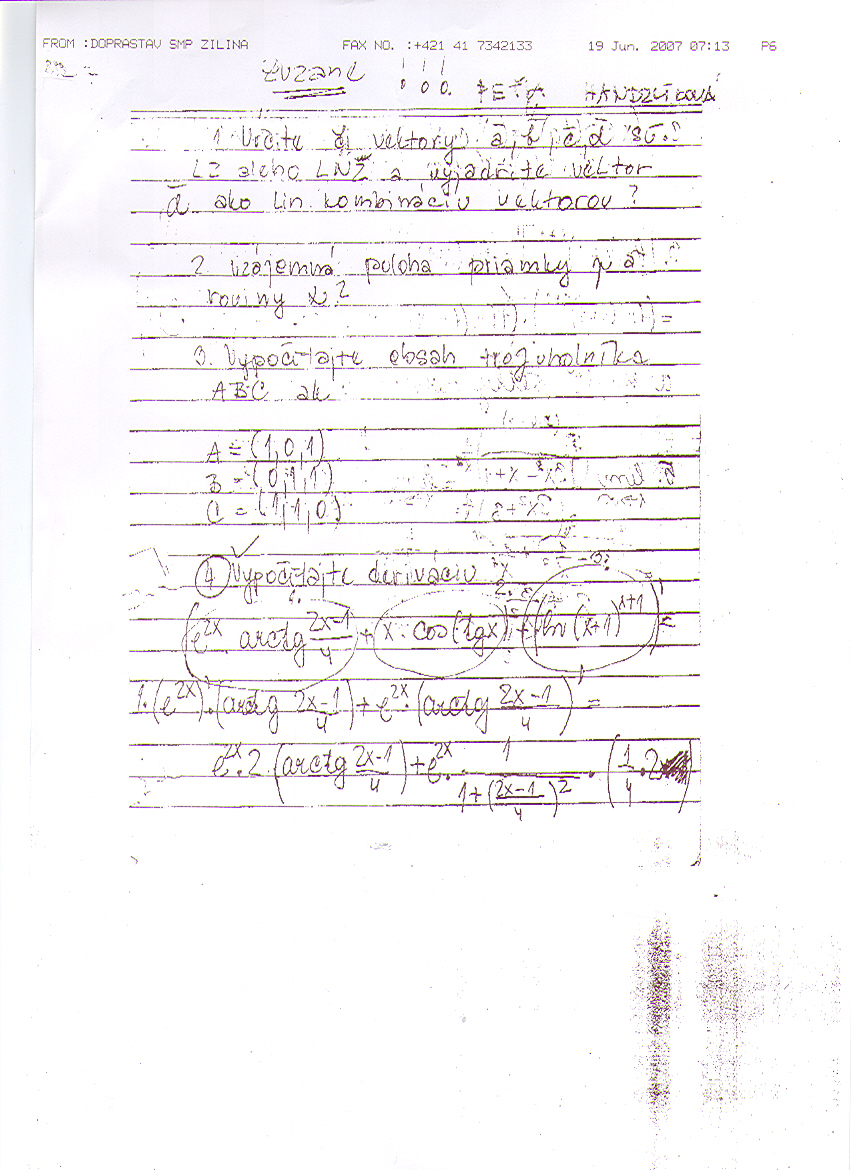 FROM :DOPRASTAV SMP ZILINA FAX NO. :+421 41 7342133 19 Jun. 2007 07:13 P6
ZUZANE
PEŤA HANDZLÍKOVÁ
1. Určite či vektory a̅, b̅, c̅, d̅ sú
LZ alebo LNŽ a vyjadrite vektor
d̅ ako lin. kombináciu vektorov ?
2 vzájemná poloha priamky p a
roviny α ?
3. Vypočítajte obsah trojuholníka
ABC ak
A = (1,0,1)
B = (0,1,1)
C = (1,1,0)
4 Vypočítajte deriváciu
(e^{2x} · arctg \frac{2x-1}{4} + x · cos(tgx) + ln(x+1)^{x+1})' =
1. (e^{2x})' · (arctg \frac{2x-1}{4}) + e^{2x} · (arctg \frac{2x-1}{4})' =
e^{2x} · 2 · (arctg \frac{2x-1}{4}) + e^{2x} · \frac{1}{1+(\frac{2x-1}{4})^2} · (\frac{1}{4} · 2)